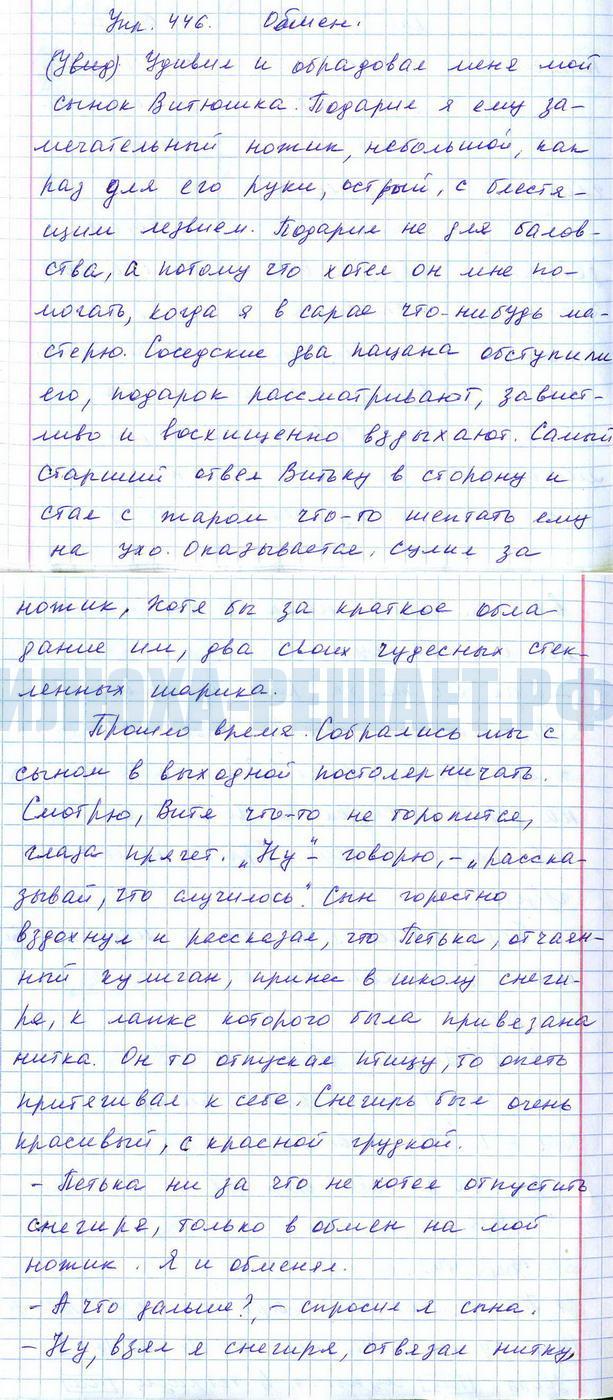 Упр. 446. Обмен.
(Увид) Удивил и обрадовал меня мой
сынок Витюшка. Подарил я ему за-
мечательный ножик, небольшой, как
раз для его руки, острый, с блестя-
щим лезвием. Подарил не для балов-
ства, а потому что хотел он мне по-
могать, когда я в сарае что-нибудь ма-
стерю. Соседские два пацана обступили
его, подарок рассматривают, завист-
ливо и восхищенно вздыхают. Самый
старший отвел Витьку в сторону и
стал с жаром что-то шептать ему
на ухо. Оказывается, сулил за
ножик, хотя бы за краткое обла-
дание им, два своих чудесных стек-
ленных шарика.
ИЛЮХА-РЕШАЕТ.РФ
Прошло время. Собрались мы с
сыном в выходной постолярничать.
Смотрю, Витя что-то не торопится,
глаза прячет. „Ну" – говорю, – „расска-
зывай, что случилось". Сын горестно
вздохнул и рассказал, что Петька, отчаян-
ный хулиган, принес в школу снеги-
ря, к лапке которого была привязана
нитка. Он то отпускал птицу, то опять
притягивал к себе. Снегирь был очень
красивый, с красной грудкой.
– Петька ни за что не хотел отпустить
снегиря, только в обмен на мой
ножик. Я и обменял.
– А что дальше?, – спросил я сына.
– Ну, взял я снегиря, отвязал нитку,